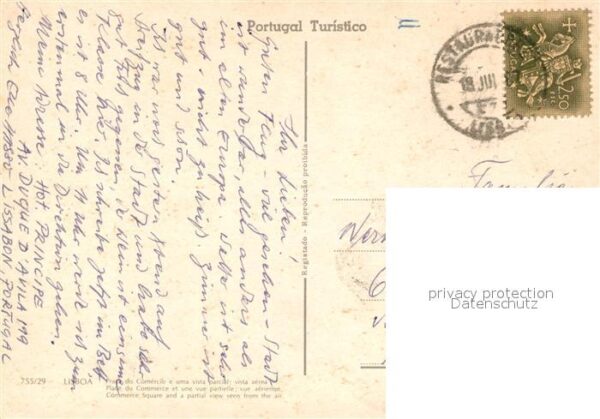 Portugal Turístico
Ihr Lieben!
Guten Flug - viel gesehen - Stadt
ist wunderbar, alles anders als
im alten Europa. Wetter ist sehr
gut - nicht zu heiß. Zimmer ist
gut und schön.
war gestern Abend auf
in die Stadt und habe sehr
gut gegessen. Wein ist
Ich schreibe jetzt im Bett
es ist 8 Uhr. Um 11 Uhr werde ich zum
erstenmal in die Direktion gehen.
Meine Adresse HOT. PRINCIPE
AV DUQUE D'AVILA 199
LISSABON, PORTUGAL
Registado - Reprodução proibida
755/29 - LISBOA
Praça do Comércio e uma vista parcial: vista aérea
Place du Commerce et une vue partielle: vue aérienne
Commerce Square and a partial view seen from the air
RESTAURA
18 JUL
PORTUGAL
2$50
Familie
privacy protection
Datenschutz